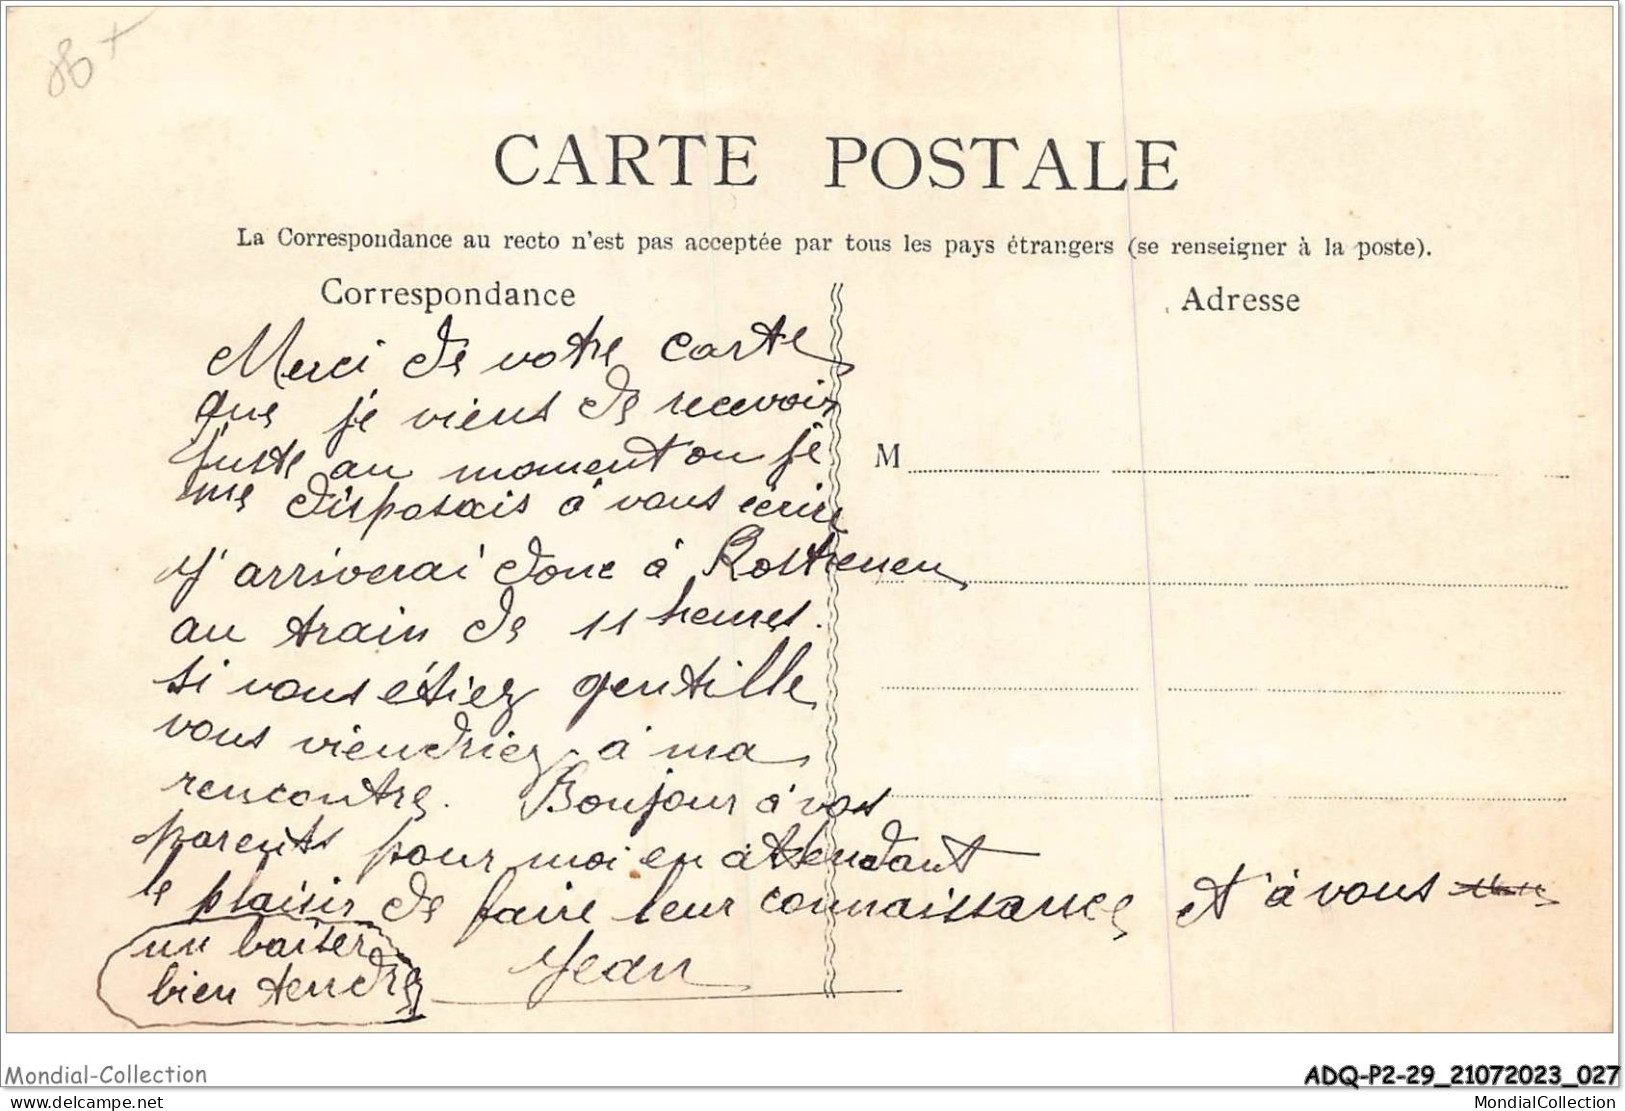 CARTE POSTALE
La Correspondance au recto n'est pas acceptée par tous les pays étrangers (se renseigner à la poste).
Correspondance
Adresse
Merci de votre carte
que je viens de recevoir
juste au moment ou je
me disposais à vous écrire
J'arriverai donc à Rostrenen
au train de 11 heures.
Si vous étiez gentille
vous viendriez à ma
rencontre. Bonjour à vos
parents pour moi en attendant
le plaisir de faire leur connaissance et à vous
un baiser
bien tendre
Jean
M
Mondial-Collection
ADQ-P2-29_21072023_027
delcampe.net
MondialCollection